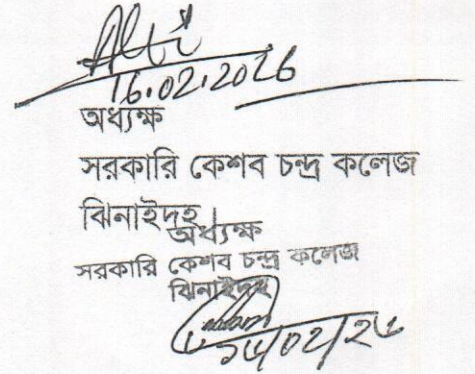 16.02.2026
অধ্যক্ষ
সরকারি কেশব চন্দ্র কলেজ
ঝিনাইদহ।
অধ্যক্ষ
সরকারি কেশব চন্দ্র কলেজ
ঝিনাইদহ
১৬/০২/২৬